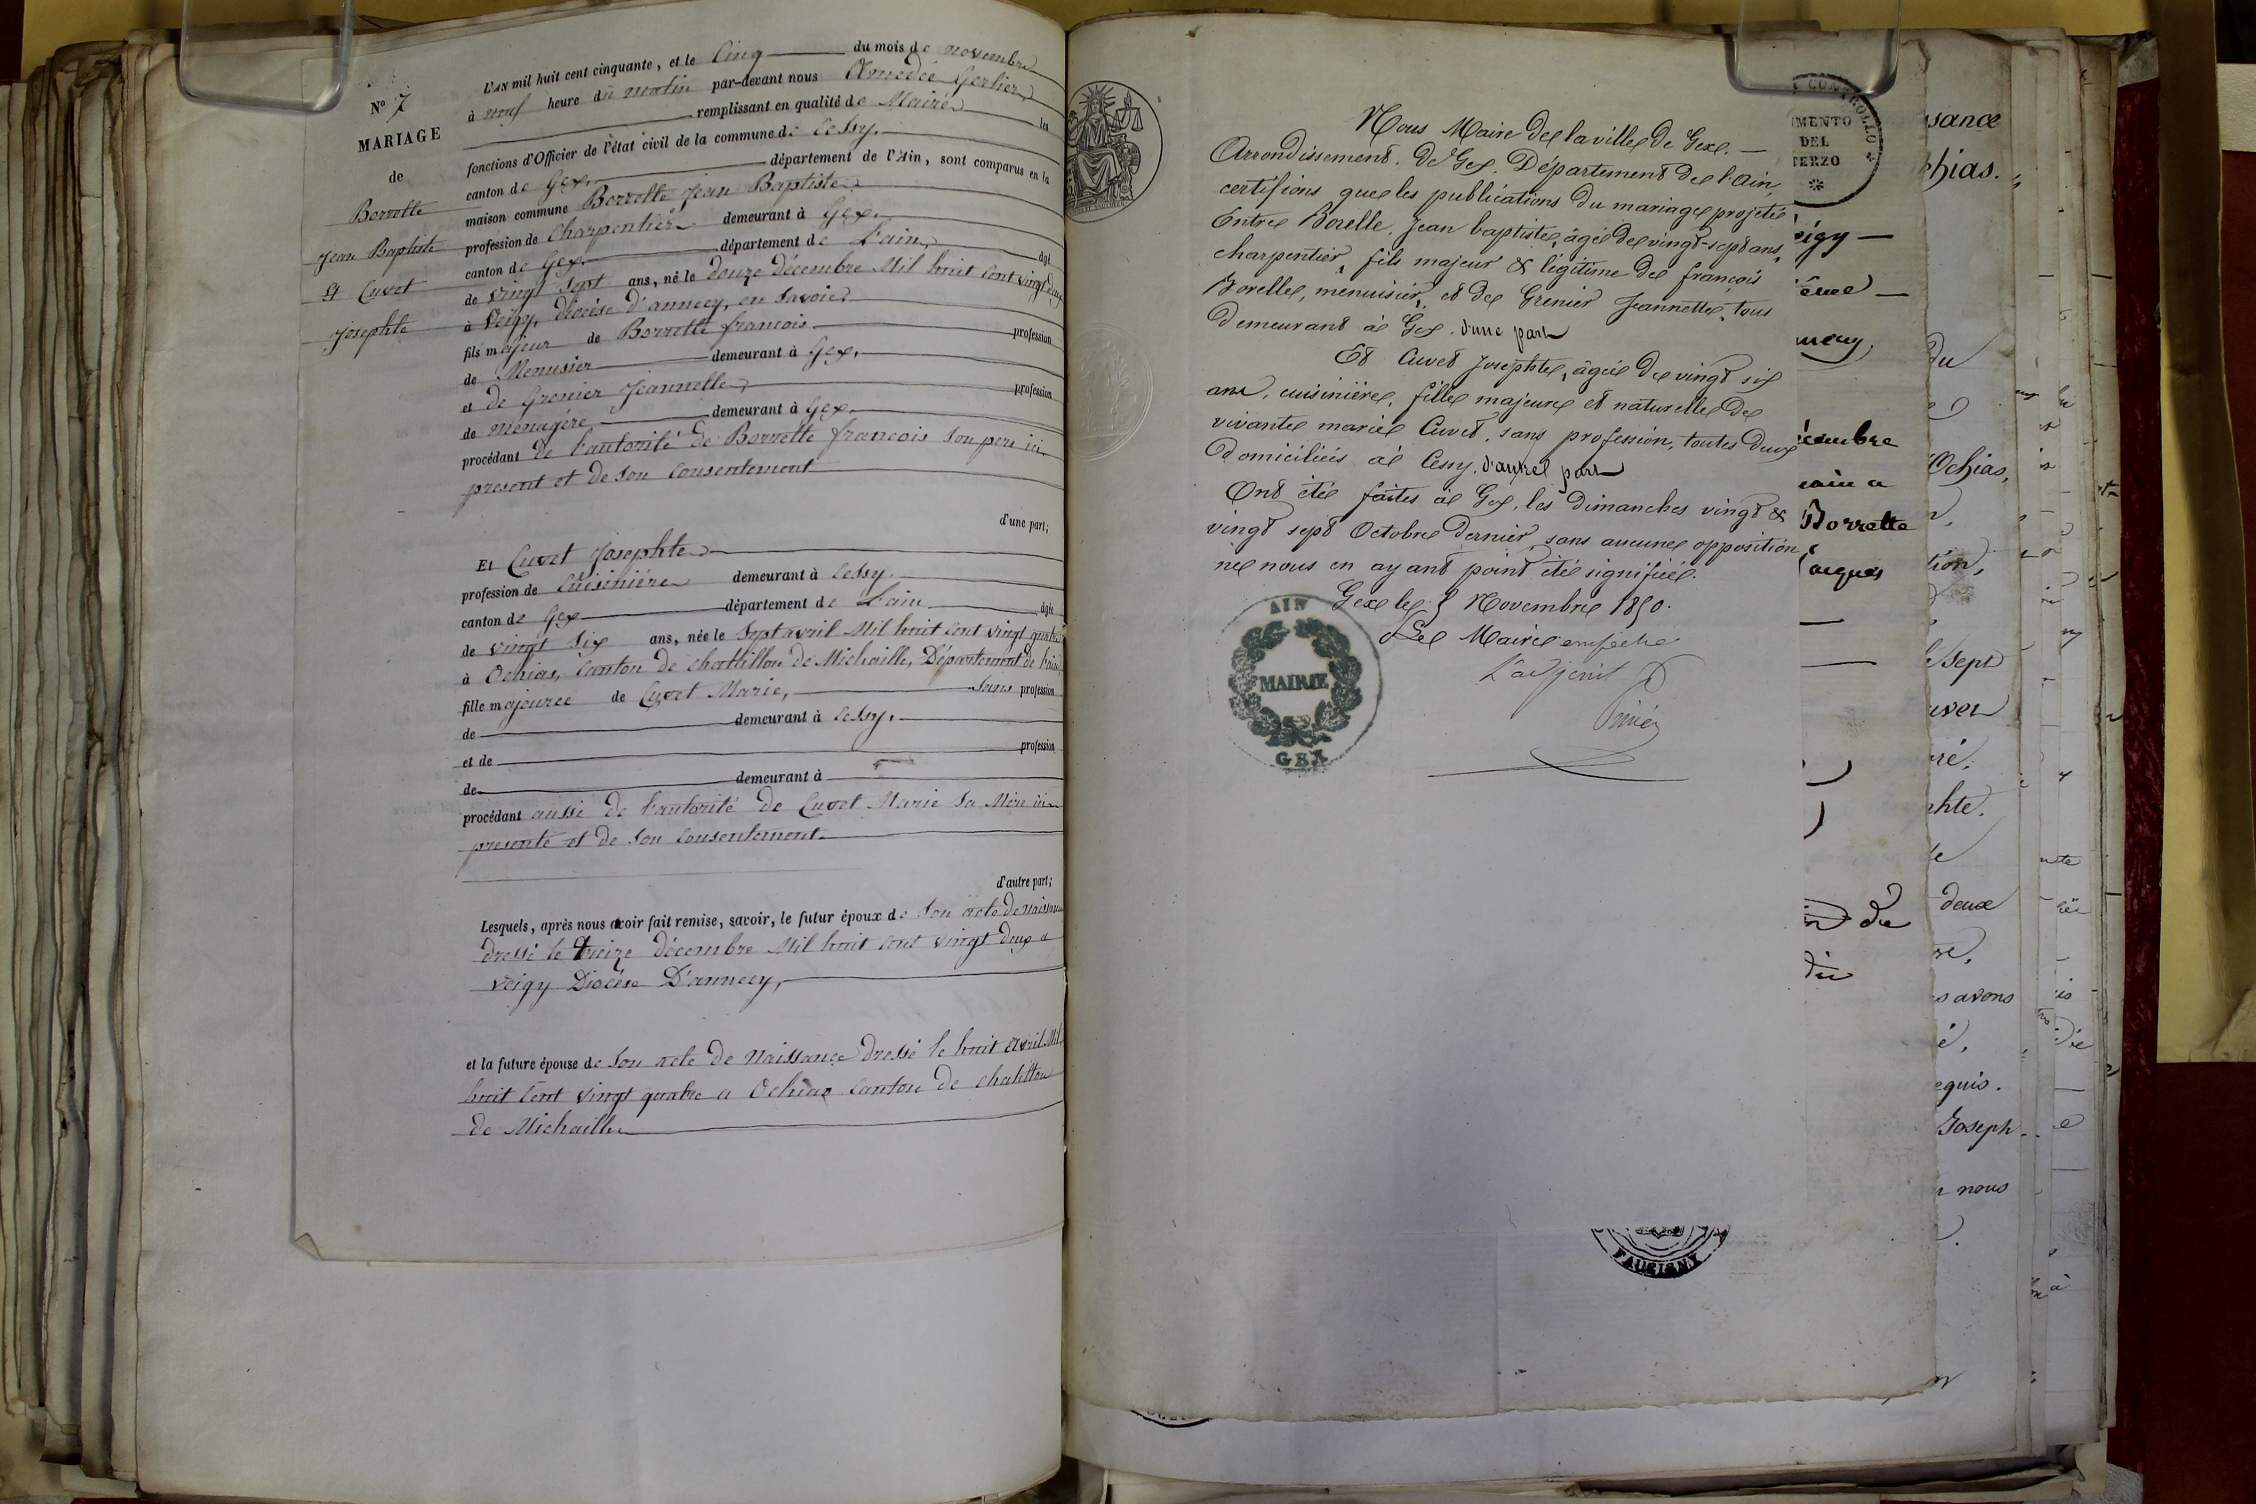 N° 7
MARIAGE
de
Borrette
Jean Baptiste
et Cuvet
Josephte
L'AN mil huit cent cinquante, et le Cinq du mois de novembre
à neuf heure du matin par-devant nous Amédée Gerlier
remplissant en qualité de Maire les
fonctions d'Officier de l'état civil de la commune de Cessy,
canton de Gex, département de l'Ain, sont comparus en la
maison commune Borrette Jean Baptiste
profession de Charpentier demeurant à Gex,
canton de Gex, département de L'ain, âgé
de vingt sept ans, né le douze Décembre Mil huit Cent vingt deux
à Veigy, diocèse d'annecy, en Savoie
fils majeur de Borrette françois profession
de Menusier demeurant à Gex,
et de Grenier Jeannette, profession
de ménagère, demeurant à Gex,
procédant de l'autorité de Borrette françois son pere ici
present et de son consentement
d'une part;
Et Cuvet Josephte
profession de Cuisinière demeurant à Cessy.
canton de Gex département de L'ain âgée
de vingt Six ans, née le Sept avril Mil huit Cent vingt quatre
à Ochias, Canton de chattillon de Michaille, Département de l'ain
fille majeure de Cuvet Marie, Sans profession
de demeurant à Cessy.
et de profession
de demeurant à
procédant aussi de l'autorité de Cuvet Marie sa Mère ici
presente et de son Consentement.
d'autre part;
Lesquels, après nous avoir fait remise, savoir, le futur époux de Son acte de naissance
dressé le treize décembre Mil huit Cent vingt deux a
Veigy Diocèse D'annecy,
et la future épouse de Son acte de Naissance Dressé le huit Avril Mil
huit Cent vingt quatre a Ochias Canton de chatillon
de Michaille
Nous Maire de la ville de Gex.
Arrondissement de Gex, Département de l'Ain,
certifions que les publications du mariage projeté
Entre Borelle, Jean baptiste, âgé de vingt-sept ans,
charpentier, fils majeur & légitime de françois
Borelle, menuisier, et de Grenier Jeannette, tous
Demeurant à Gex. d'une part
Et Cuvet Josephte, âgée de vingt six
ans, cuisinière, fille majeure et naturelle de
vivante marie Cuvet, sans profession, toutes deux
domiciliées à Cessy, d'autre part
Ont été faites à Gex, les dimanches vingt &
vingt sept Octobre dernier, sans aucune opposition
ne nous en ayant point été signifiée.
Gex le 5 Novembre 1850.
Le Maire empêché
L'adjoint
AIN
MAIRIE
GEX
CONTROLLO
DEL
TERZO
Borrette
deux
avons
Joseph
nous
FAUCIGNY